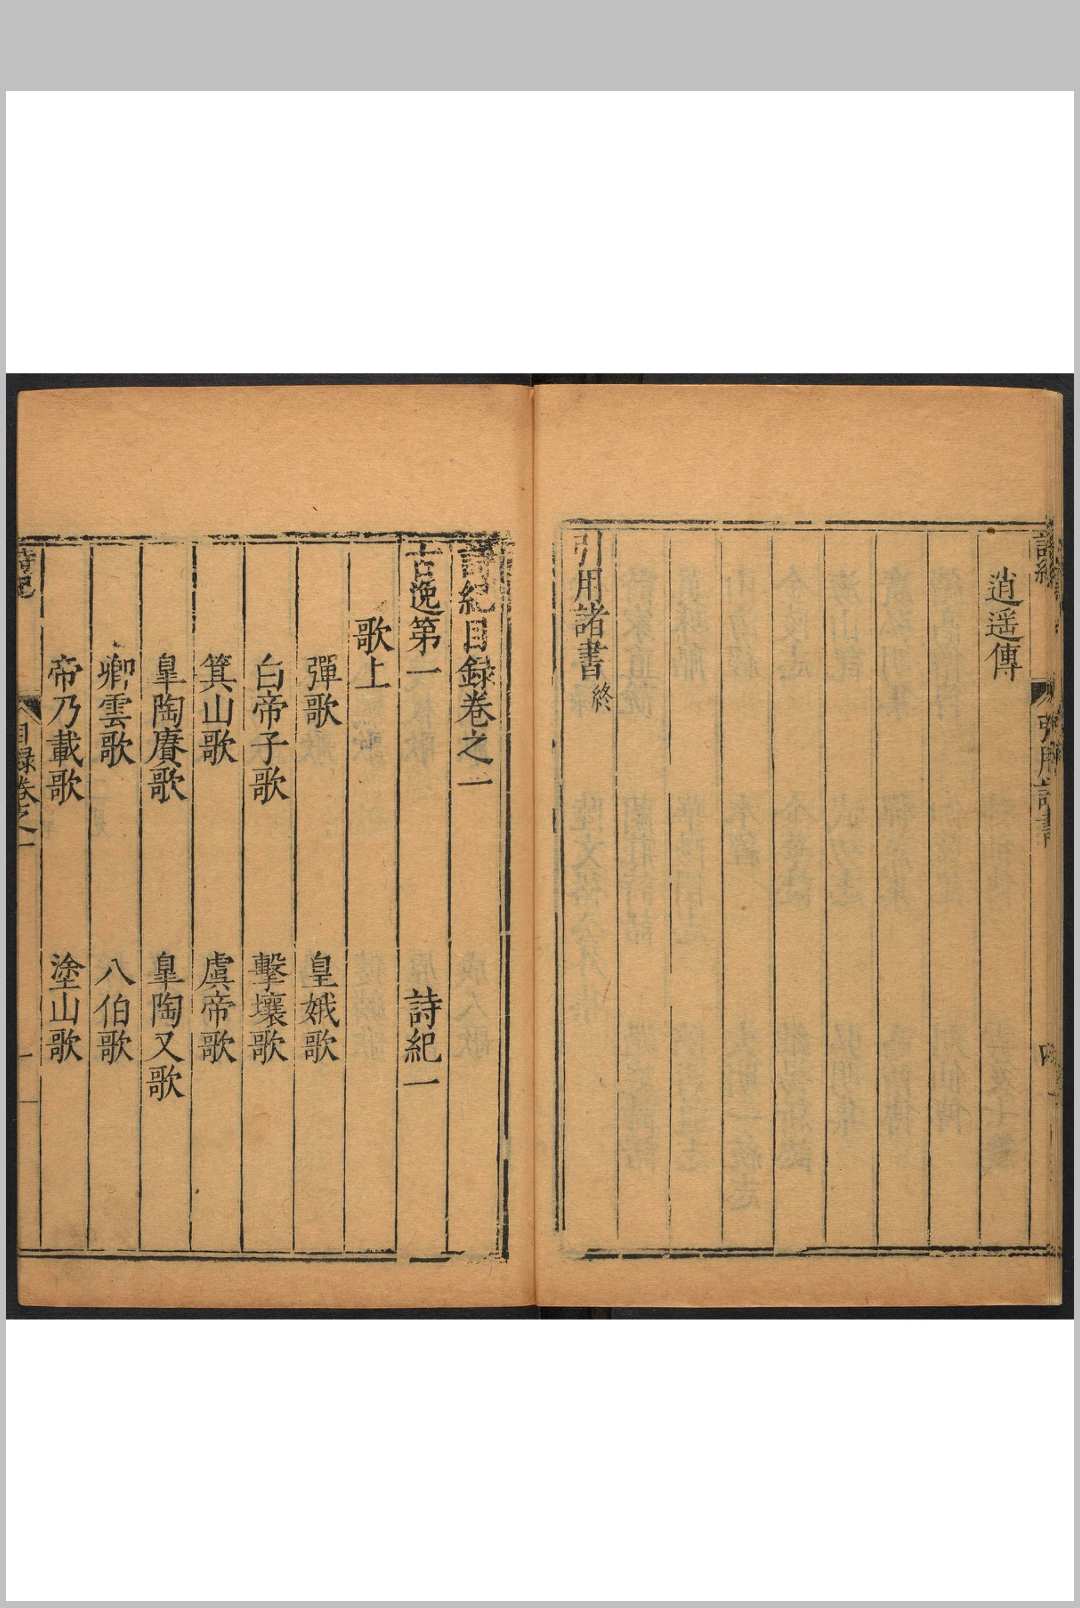 詩紀
引用諸書
四
逍遥傳
引用諸書終
詩紀目録卷之一
古逸第一　詩紀一
歌上
彈歌　皇娥歌
白帝子歌　擊壤歌
箕山歌　虞帝歌
皐陶賡歌　皐陶又歌
卿雲歌　八伯歌
帝乃載歌　塗山歌
詩紀
目録卷之一
一